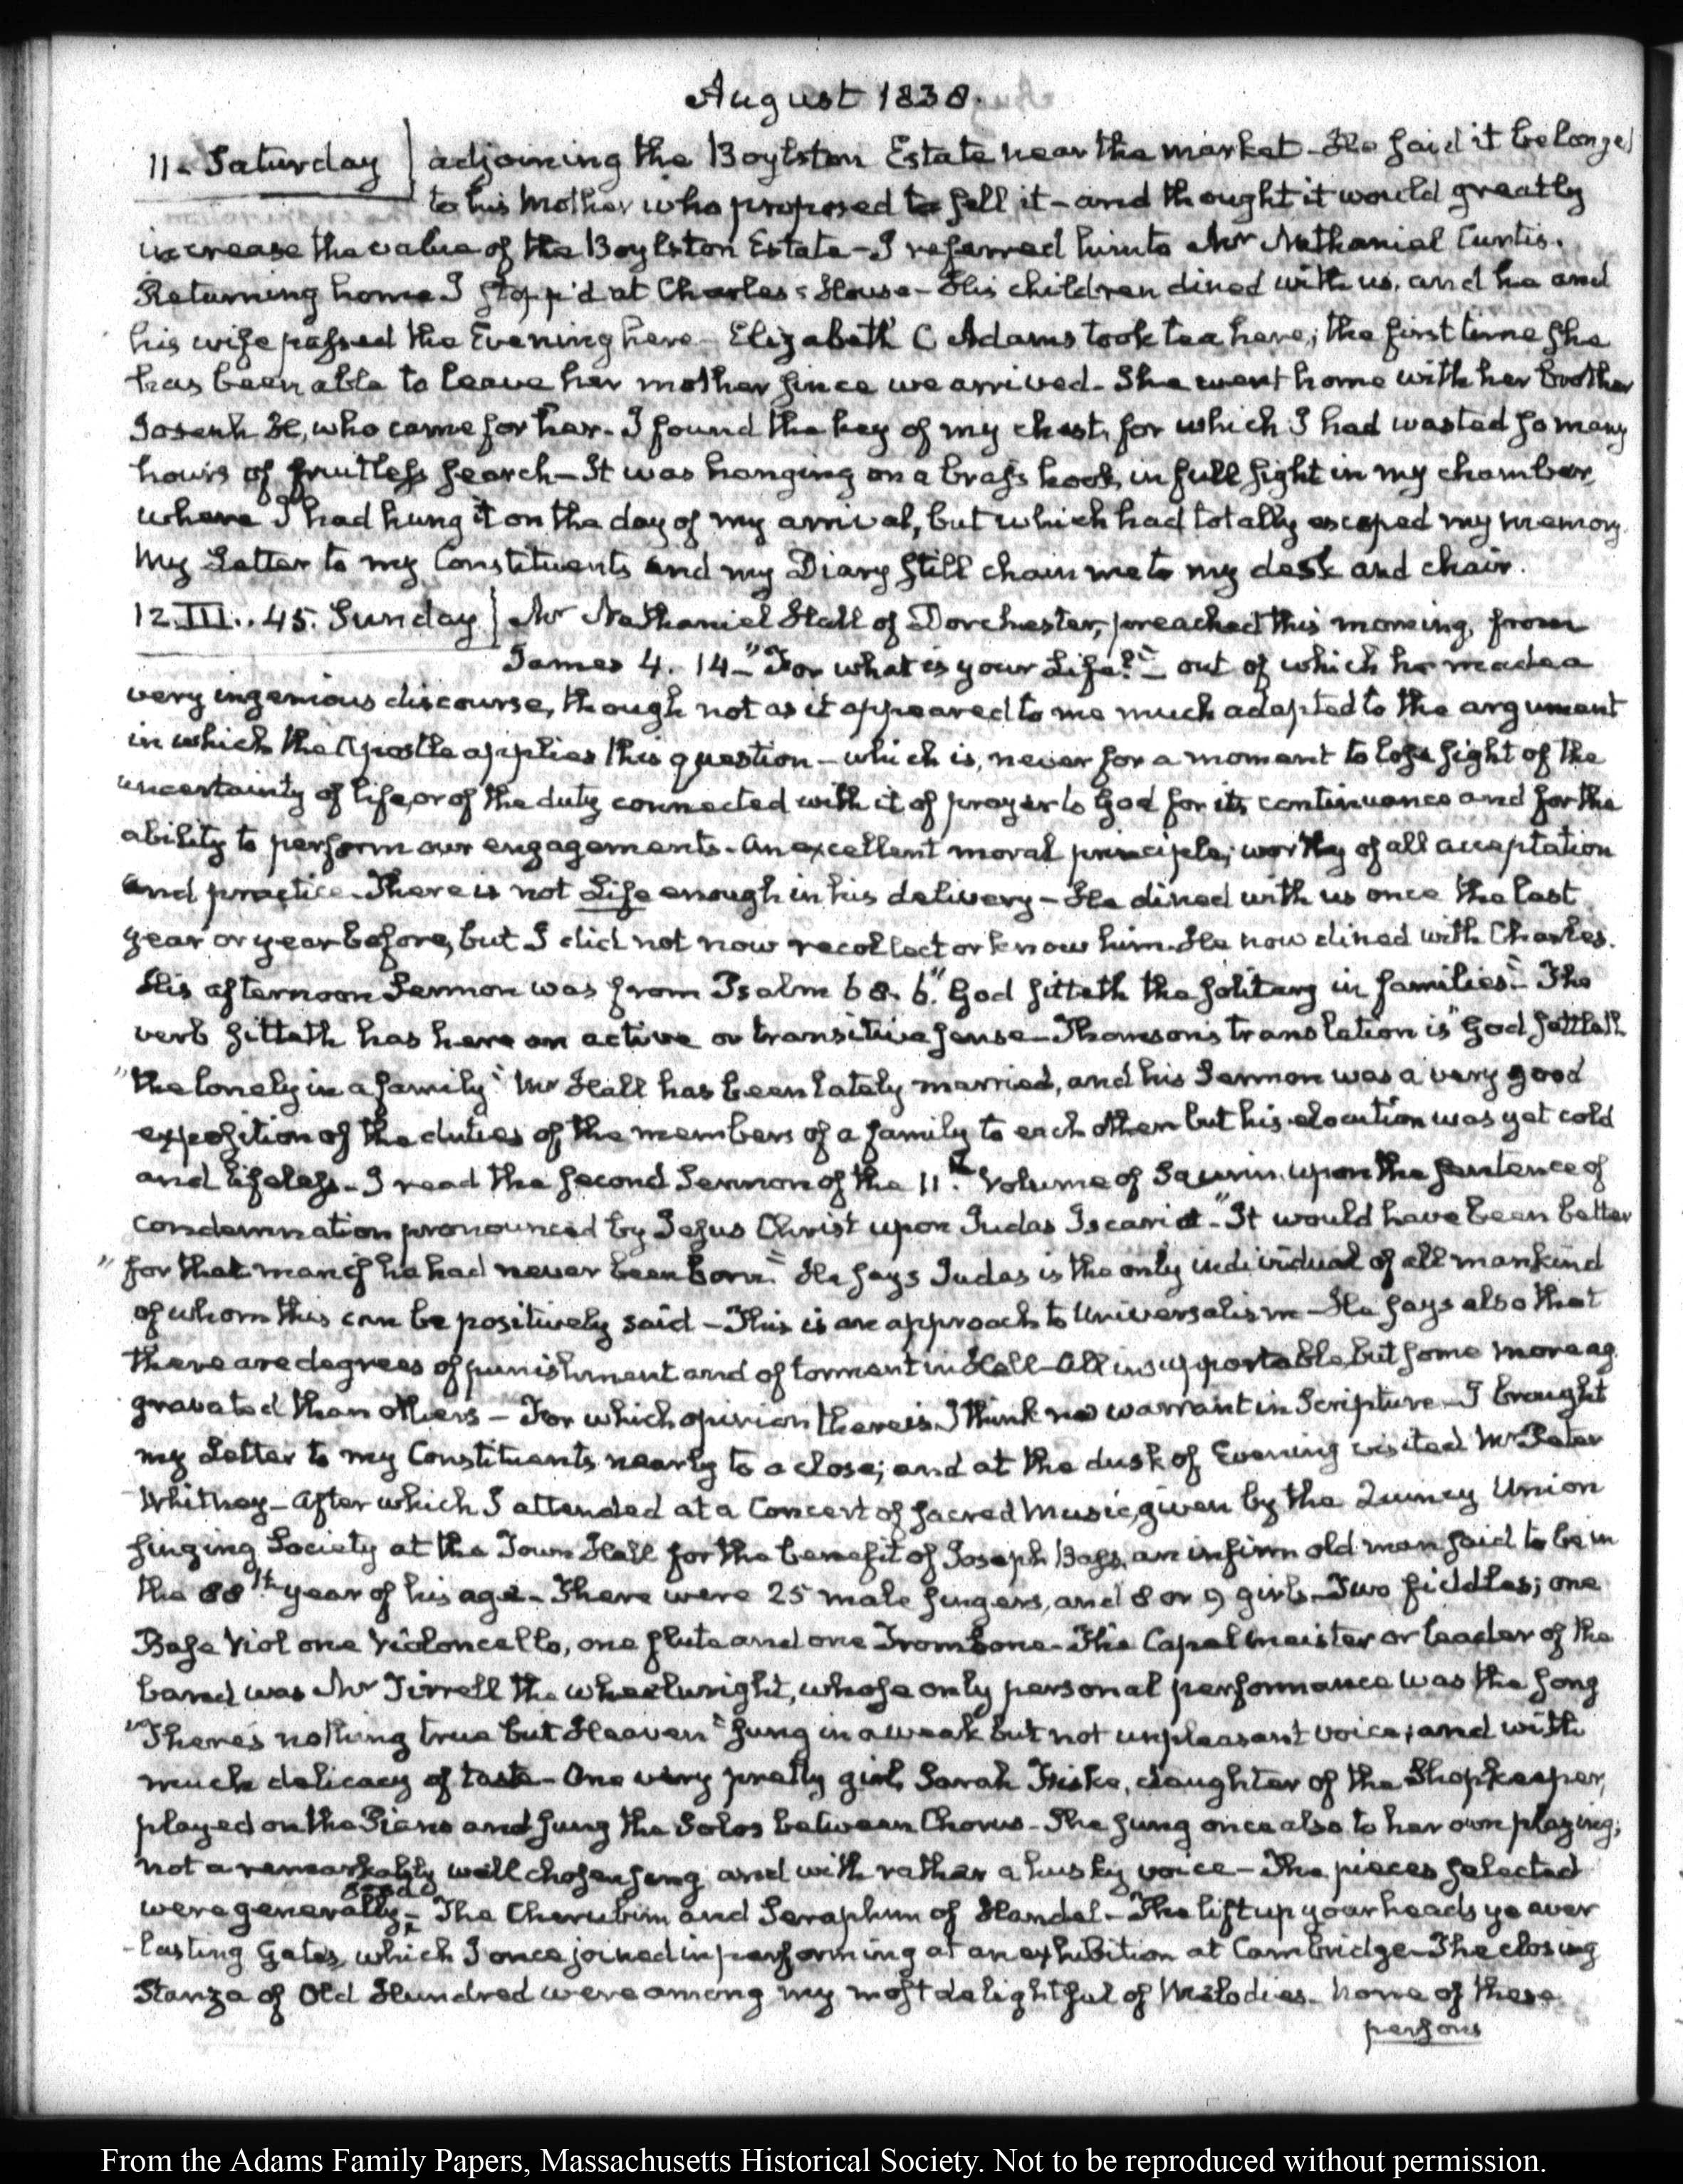 August 1838.
11. Saturday adjoining the Boylston Estate near the market - He said it belonged
to his Mother who proposed to sell it - and thought it would greatly
increase the value of the Boylston Estate - I referred him to Mr Nathaniel Curtis.
Returning home I stopp'd at Charles's House - His children dined with us, and he and
his wife passed the Evening here - Elizabeth C Adams took tea here; the first time she
has been able to leave her mother since we arrived - She went home with her brother
Joseph H, who came for her - I found the key of my chest, for which I had wasted so many
hours of fruitless search - It was hanging on a brass hook, in full sight in my chamber,
where I had hung it on the day of my arrival, but which had totally escaped my memory.
My Letter to my Constituents and my Diary still chain me to my desk and chair.
12. III. . 45. Sunday Mr Nathaniel Hall of Dorchester, preached this morning, from
James 4. 14 - "For what is your Life?" - out of which he made a
very ingenious discourse, though not as it appeared to me much adapted to the argument
in which the Apostle applies this question - which is, never for a moment to lose sight of the
uncertainty of life, or of the duty connected with it of prayer to God for its continuance and for the
ability to perform our engagements - An excellent moral principle; worthy of all acceptation
and practice - There is not Life enough in his delivery - He dined with us once the last
year or year before, but I did not now recollect or know him. He now dined with Charles.
His afternoon Sermon was from Psalm 68. 6. "God sitteth the solitary in families" - The
verb sitteth has here an active or transitive sense - Thomson's translation is "God settleth
"the lonely in a family" Mr Hall has been lately married, and his Sermon was a very good
exposition of the duties of the members of a family to each other but his elocution was yet cold
and lifeless - I read the second Sermon of the 11th Volume of Saurin, upon the sentence of
condemnation pronounced by Jesus Christ upon Judas Iscariot - "It would have been better
"for that man if he had never been born." He says Judas is the only individual of all mankind
of whom this can be positively said - This is an approach to Universalism - He says also that
there are degrees of punishment and of torment in Hell - All insupportable, but some more ag
gravated than others - For which opinion there is I think no warrant in Scripture - I brought
my Letter to my Constituents nearly to a close; and at the dusk of Evening visited Mr Peter
Whitney - After which I attended at a Concert of sacred Music, given by the Quincy Union
singing Society at the Town Hall for the benefit of Joseph Bass, an infirm old man said to be in
the 88th year of his age - There were 25 male singers, and 8 or 9 girls - Two fiddles; one
Base Viol one Violoncello, one flute and one Trombone - The Capel meister or leader of the
band was Mr Tirrell the wheelwright, whose only personal performance was the song
"There's nothing true but Heaven" sung in a weak but not unpleasant voice; and with
much delicacy of taste - One very pretty girl, Sarah Friske, daughter of the Shopkeeper,
played on the Piano and sung the Solos between Chorus - She sung once also to her own playing;
not a remarkably well chosen song and with rather a husky voice - The pieces selected
were generally good - The Cherubim and Seraphim of Handel - The lift up your heads ye ever
-lasting Gates, which I once joined in performing at an exhibition at Cambridge - The closing
Stanza of Old Hundred were among my most delightful of Melodies - None of these
persons
From the Adams Family Papers, Massachusetts Historical Society. Not to be reproduced without permission.